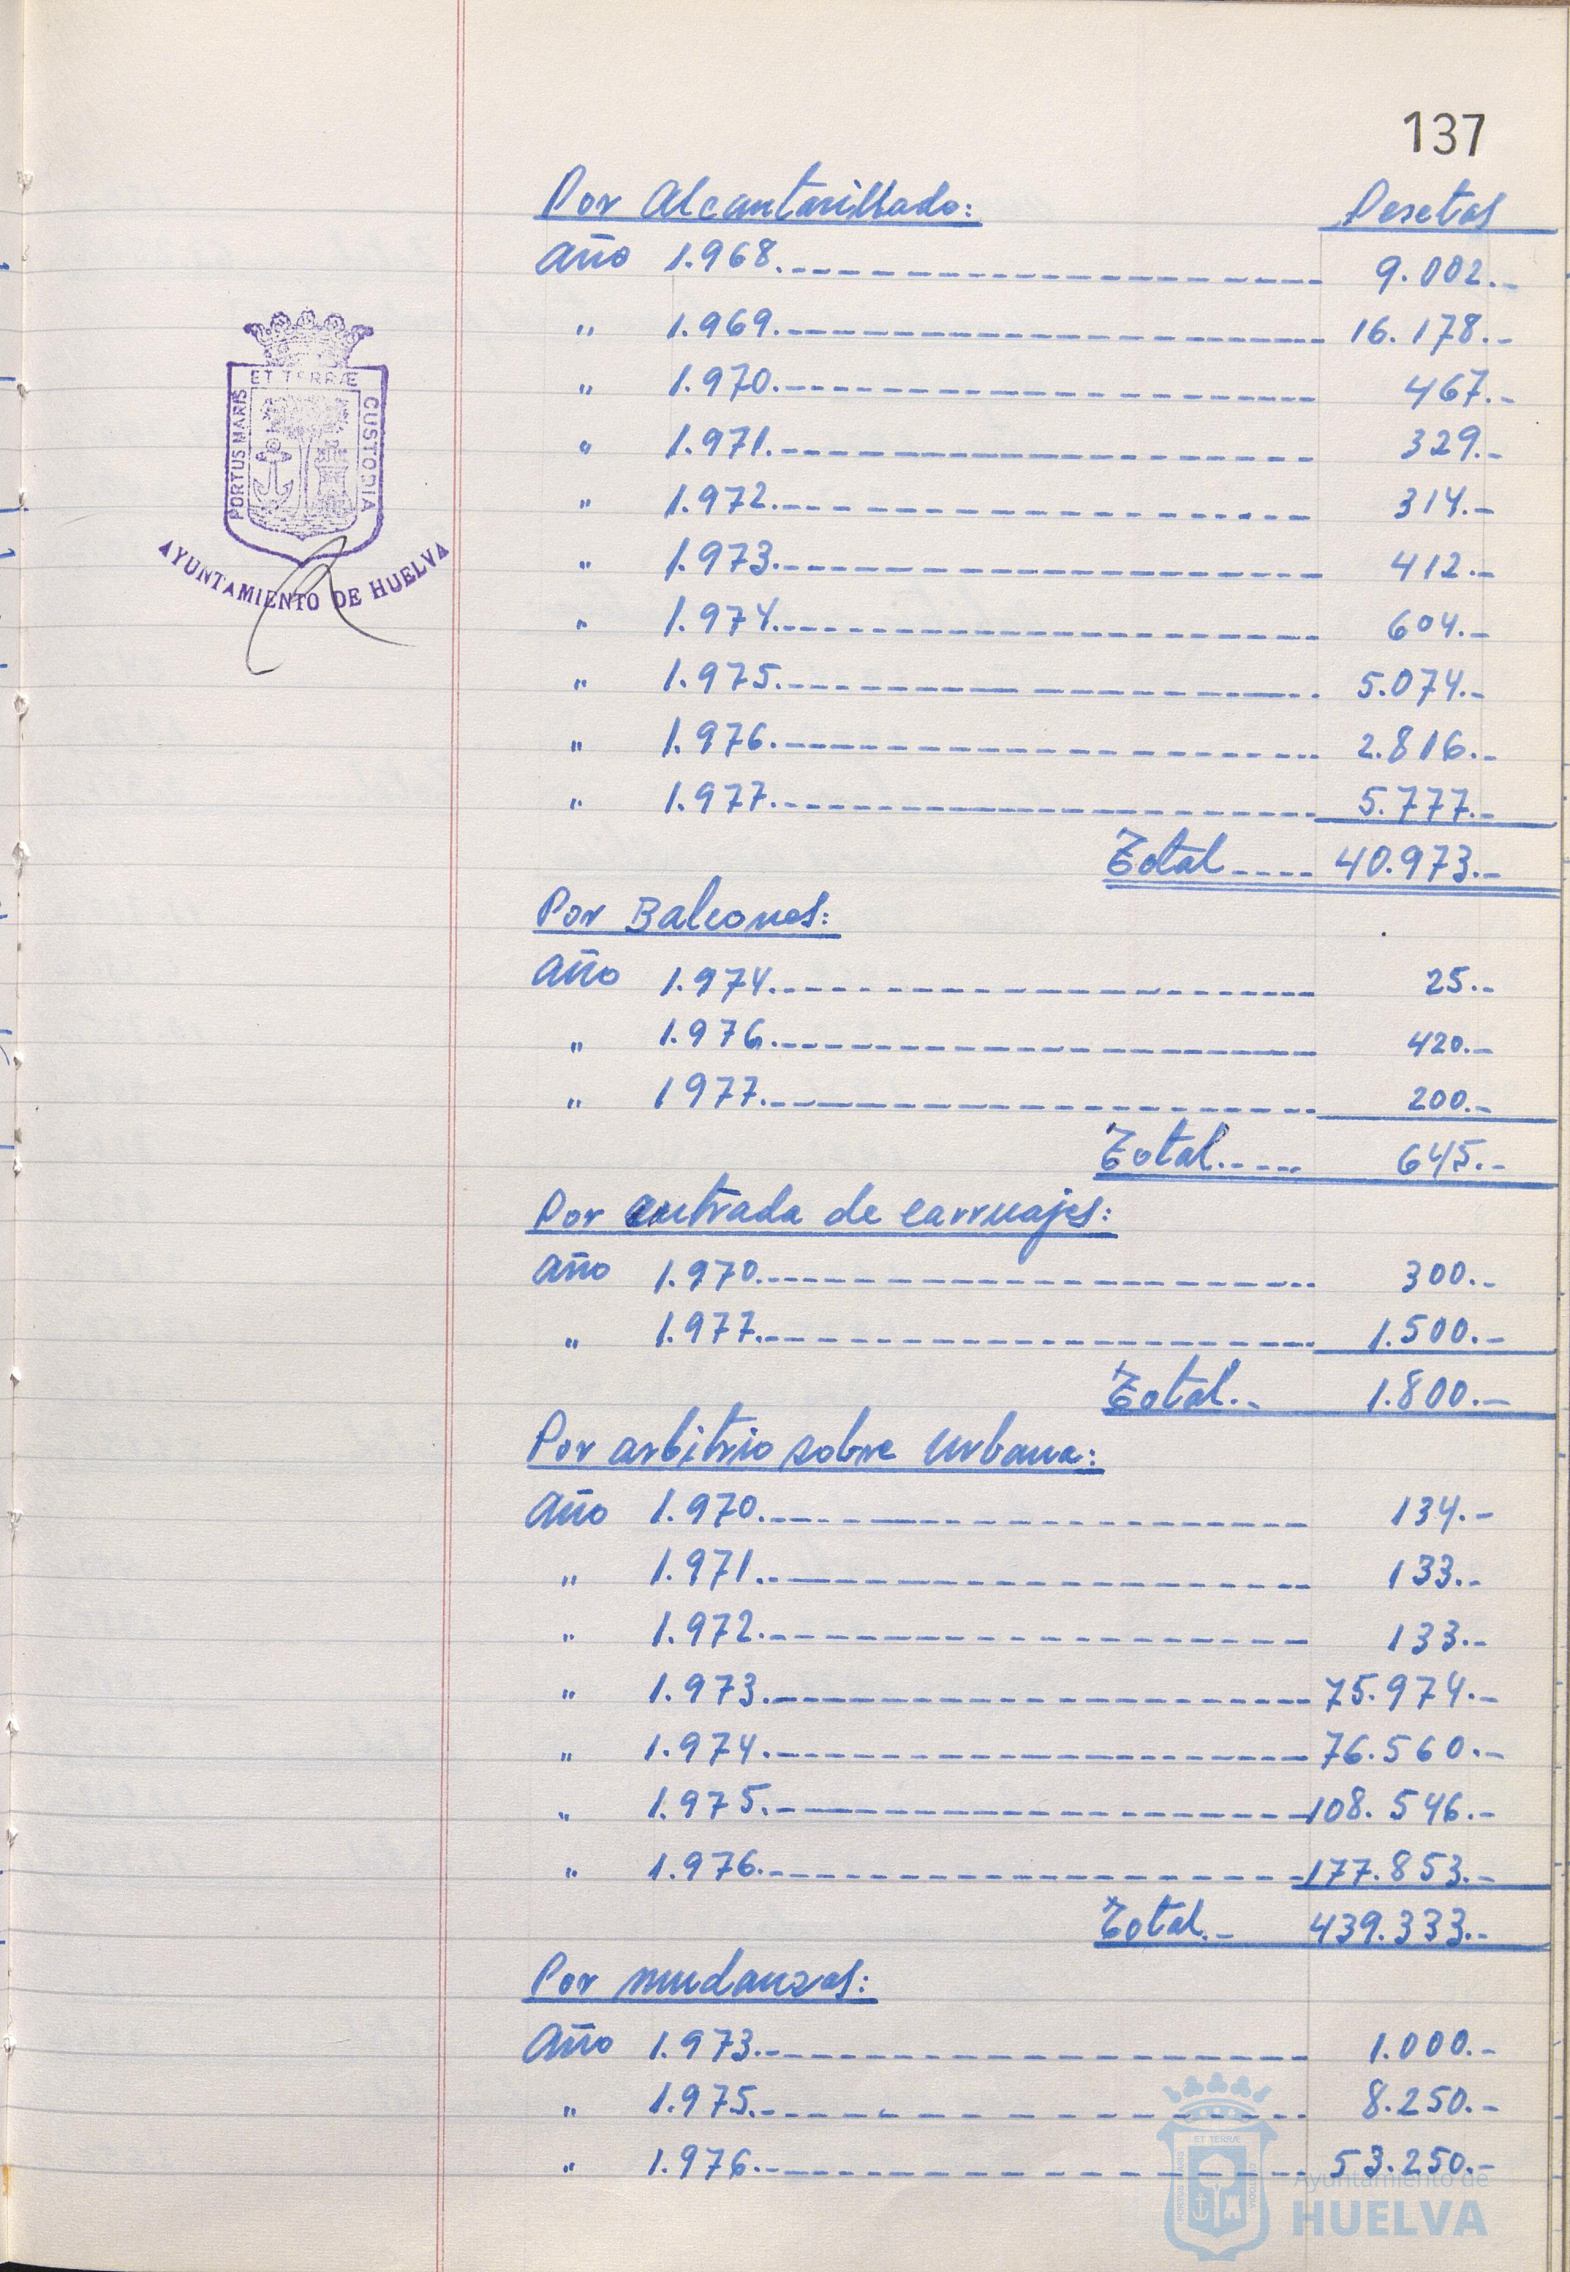 137
Por Alcantarillado: Pesetas
Año 1.968. 9.002.-
" 1.969. 16.178.-
" 1.970. 467.-
" 1.971. 329.-
" 1.972. 314.-
" 1.973. 412.-
" 1.974. 604.-
" 1.975. 5.074.-
" 1.976. 2.816.-
" 1.977. 5.777.-
Total 40.973.-
Por Balcones:
Año 1.974. 25.-
" 1.976. 420.-
" 1977. 200.-
Total 645.-
Por entrada de carruajes:
Año 1.970. 300.-
" 1.977. 1.500.-
Total 1.800.-
Por arbitrio sobre Urbana:
Año 1.970. 134.-
" 1.971. 133.-
" 1.972. 133.-
" 1.973. 75.974.-
" 1.974. 76.560.-
" 1.975. 108.546.-
" 1.976. 177.853.-
Total 439.333.-
Por mudanzas:
Año 1.973. 1.000.-
" 1.975. 8.250.-
" 1.976. 53.250.-
PORTUS MARIS ET TERRÆ CUSTODIA
AYUNTAMIENTO DE HUELVA
PORTUS MARIS ET TERRÆ CUSTODIA
Ayuntamiento de
HUELVA